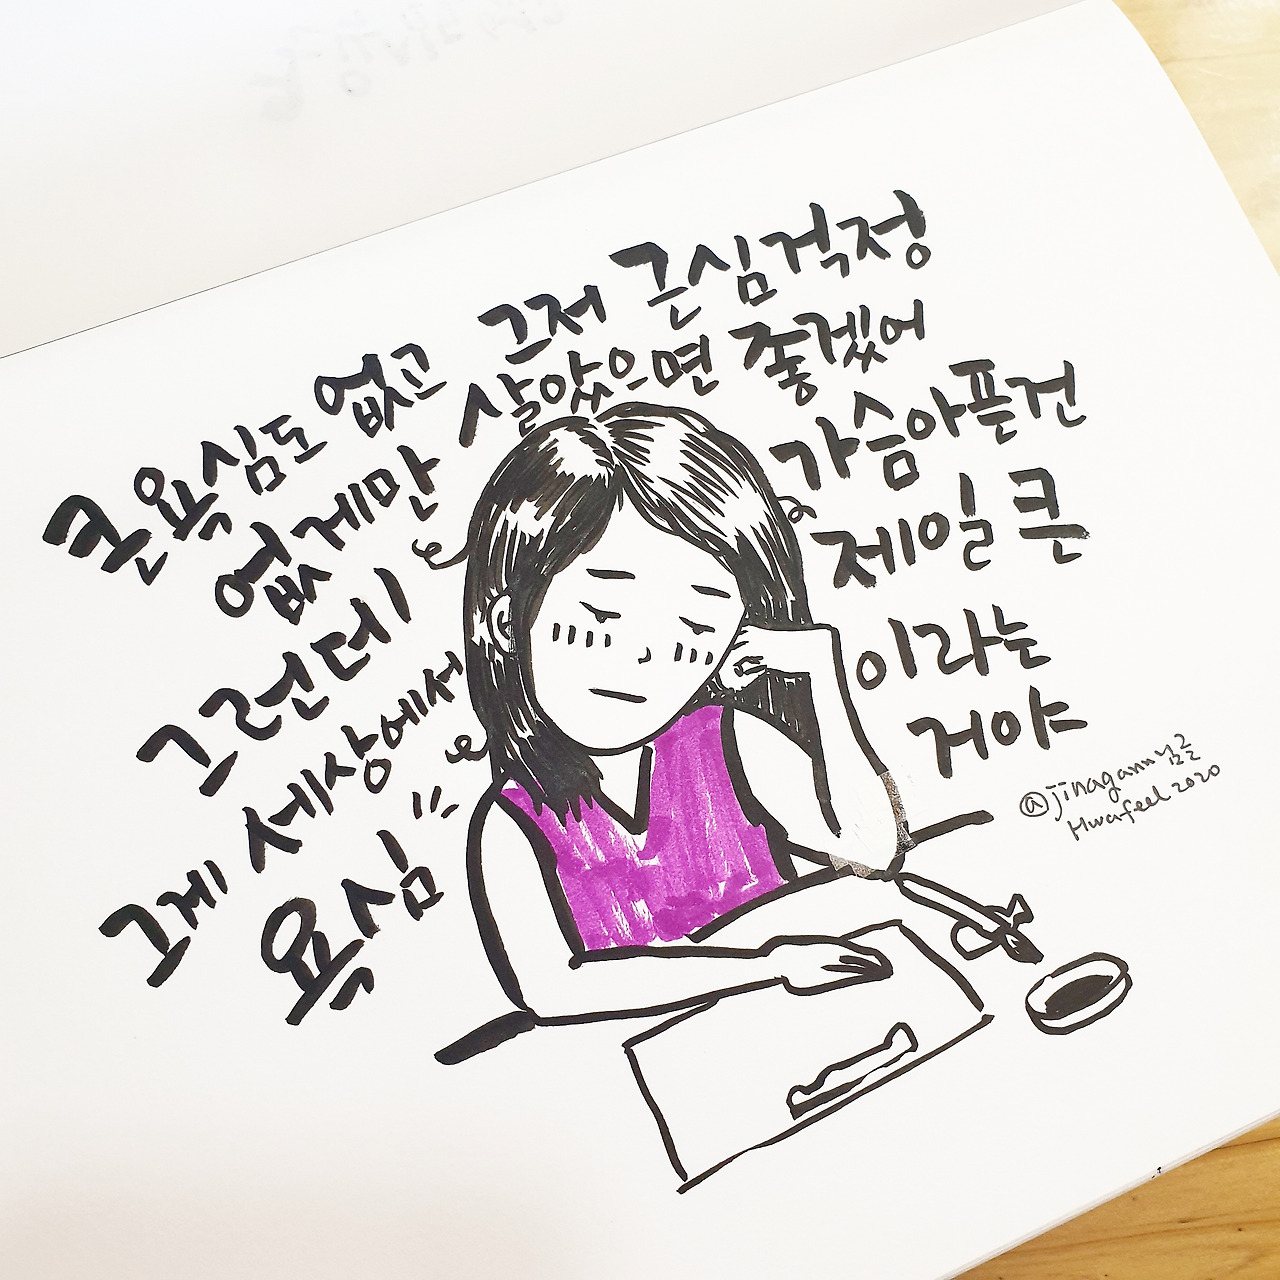 큰 욕심도 없고 그저 근심걱정
없게만 살았으면 좋겠어
그런데 가슴아픈건
그게 세상에서 제일 큰
욕심 이라는
거야
@jinagann
Hwafeel 2020